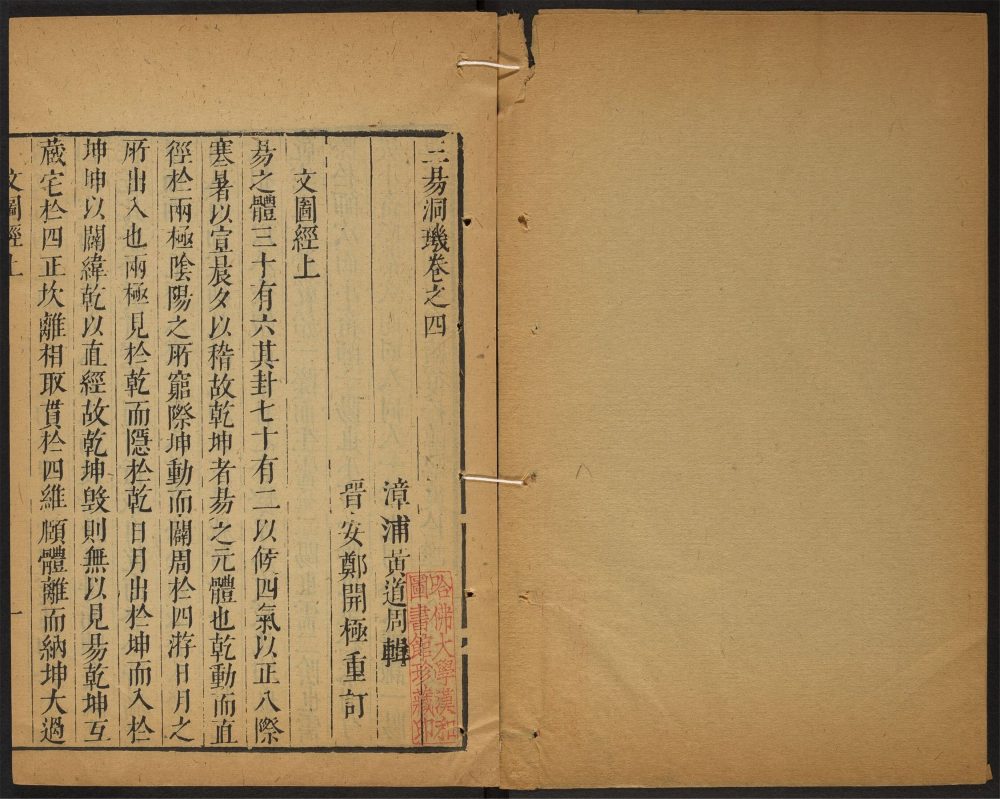 三易洞璣卷之四
漳浦黃道周輯
晉安鄭開極重訂
文圖經上
易之體三十有六其卦七十有二以候四氣以正八際
寒暑以宣晨夕以稽故乾坤者易之元體也乾動而直
徑於兩極陰陽之所窮際坤動而闢周於四游日月之
所出入也兩極見於乾而隱於乾日月出於坤而入於
坤坤以闢緯乾以直經故乾坤毀則無以見易乾坤互
藏宅於四正坎離相取貫於四維頤體離而納坤大過
文圖經上
一
哈佛大學漢和
圖書館珍藏印